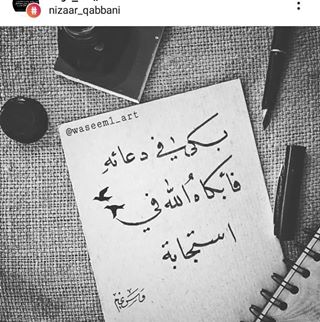 nizaar_qabbani
@waseem1_art
بكى في دعائهِ
فأبكاهُ الله في
استجابة